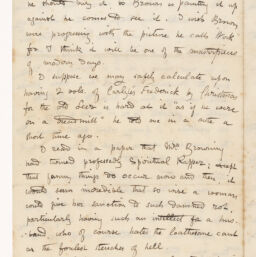 he should buy it so Brown is painting it up
against he comes to see it. I wish Brown
were progressing with the picture he calls Work
for I think it will be one of the masterpieces
of modern days.
I suppose we may safely calculate upon
having 2 vols. of Carlyle's Frederick by Christmas
for the old Seer is hard at it "as if he were
on a treadmill" he told me in a note a
short time ago.
I read in a paper that Mrs Browning
had turned professedly Spiritual Rapper; except
that funny things do occur now and then it
would seem incredible that so wise a woman,
could give her sanction to such damned rot
particularly having such an intellect for a hus-
band who of course hates the loathsome cant
as the foulest stenches of hell